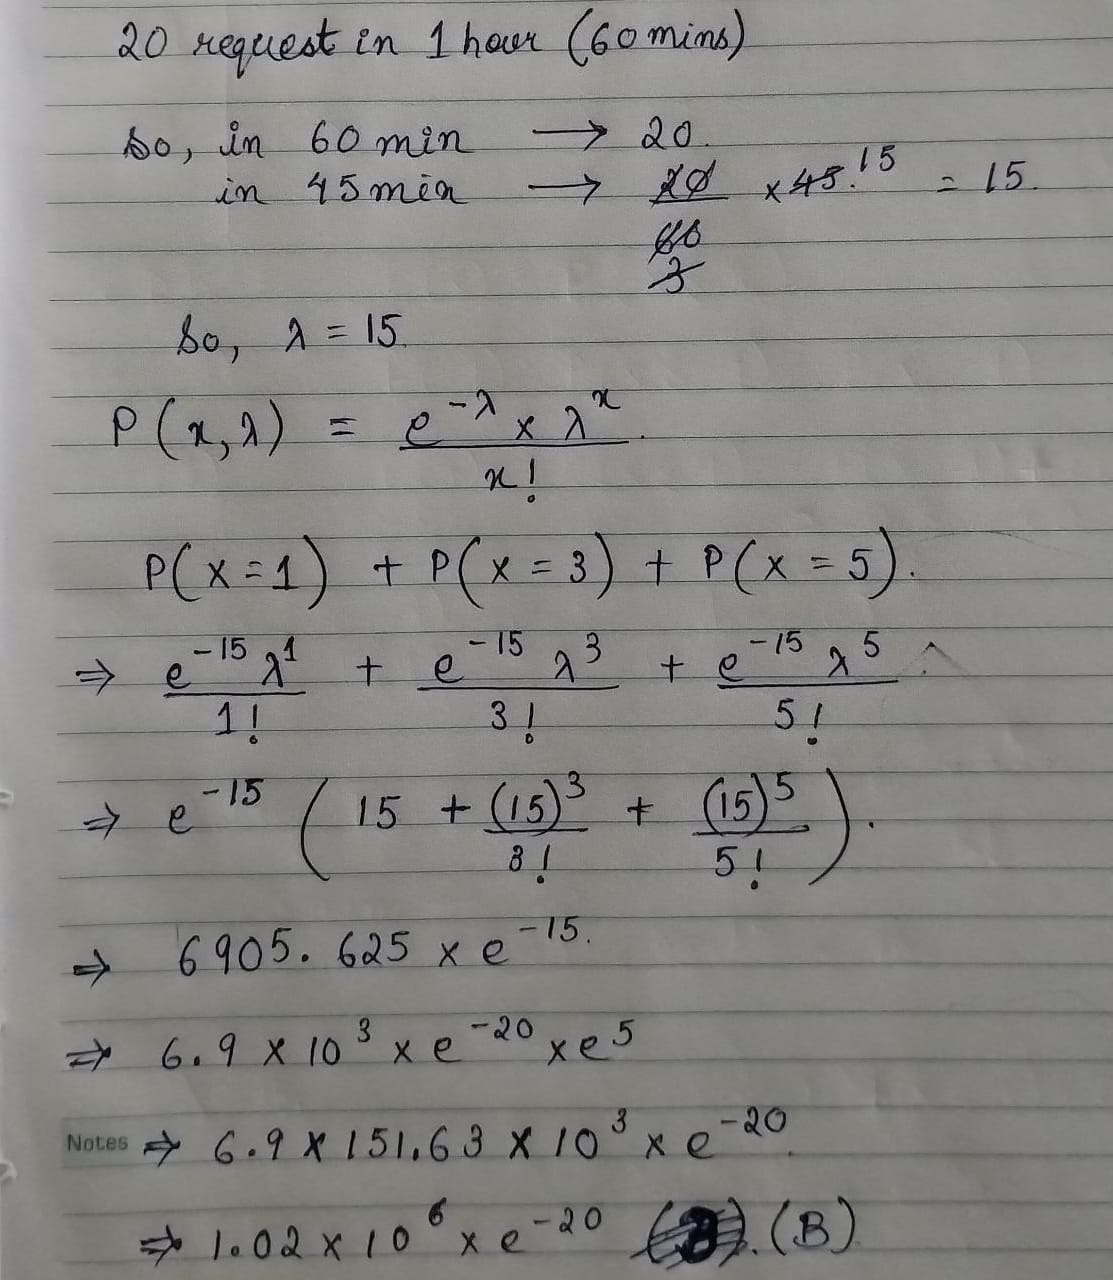 20 request in 1 hour (60 mins)
So, in 60 min → 20.
in 45 min → 20/60 × 45 15 = 15.
3
So, λ = 15.
P(x, λ) = e^-λ × λ^x / x!
P(x=1) + P(x=3) + P(x=5).
⇒ e^-15 λ^1 / 1! + e^-15 λ^3 / 3! + e^-15 λ^5 / 5!
⇒ e^-15 (15 + (15)^3 / 3! + (15)^5 / 5!).
⇒ 6905.625 × e^-15.
⇒ 6.9 × 10^3 × e^-20 × e^5
Notes ⇒ 6.9 × 151.63 × 10^3 × e^-20.
⇒ 1.02 × 10^6 × e^-20 (B)